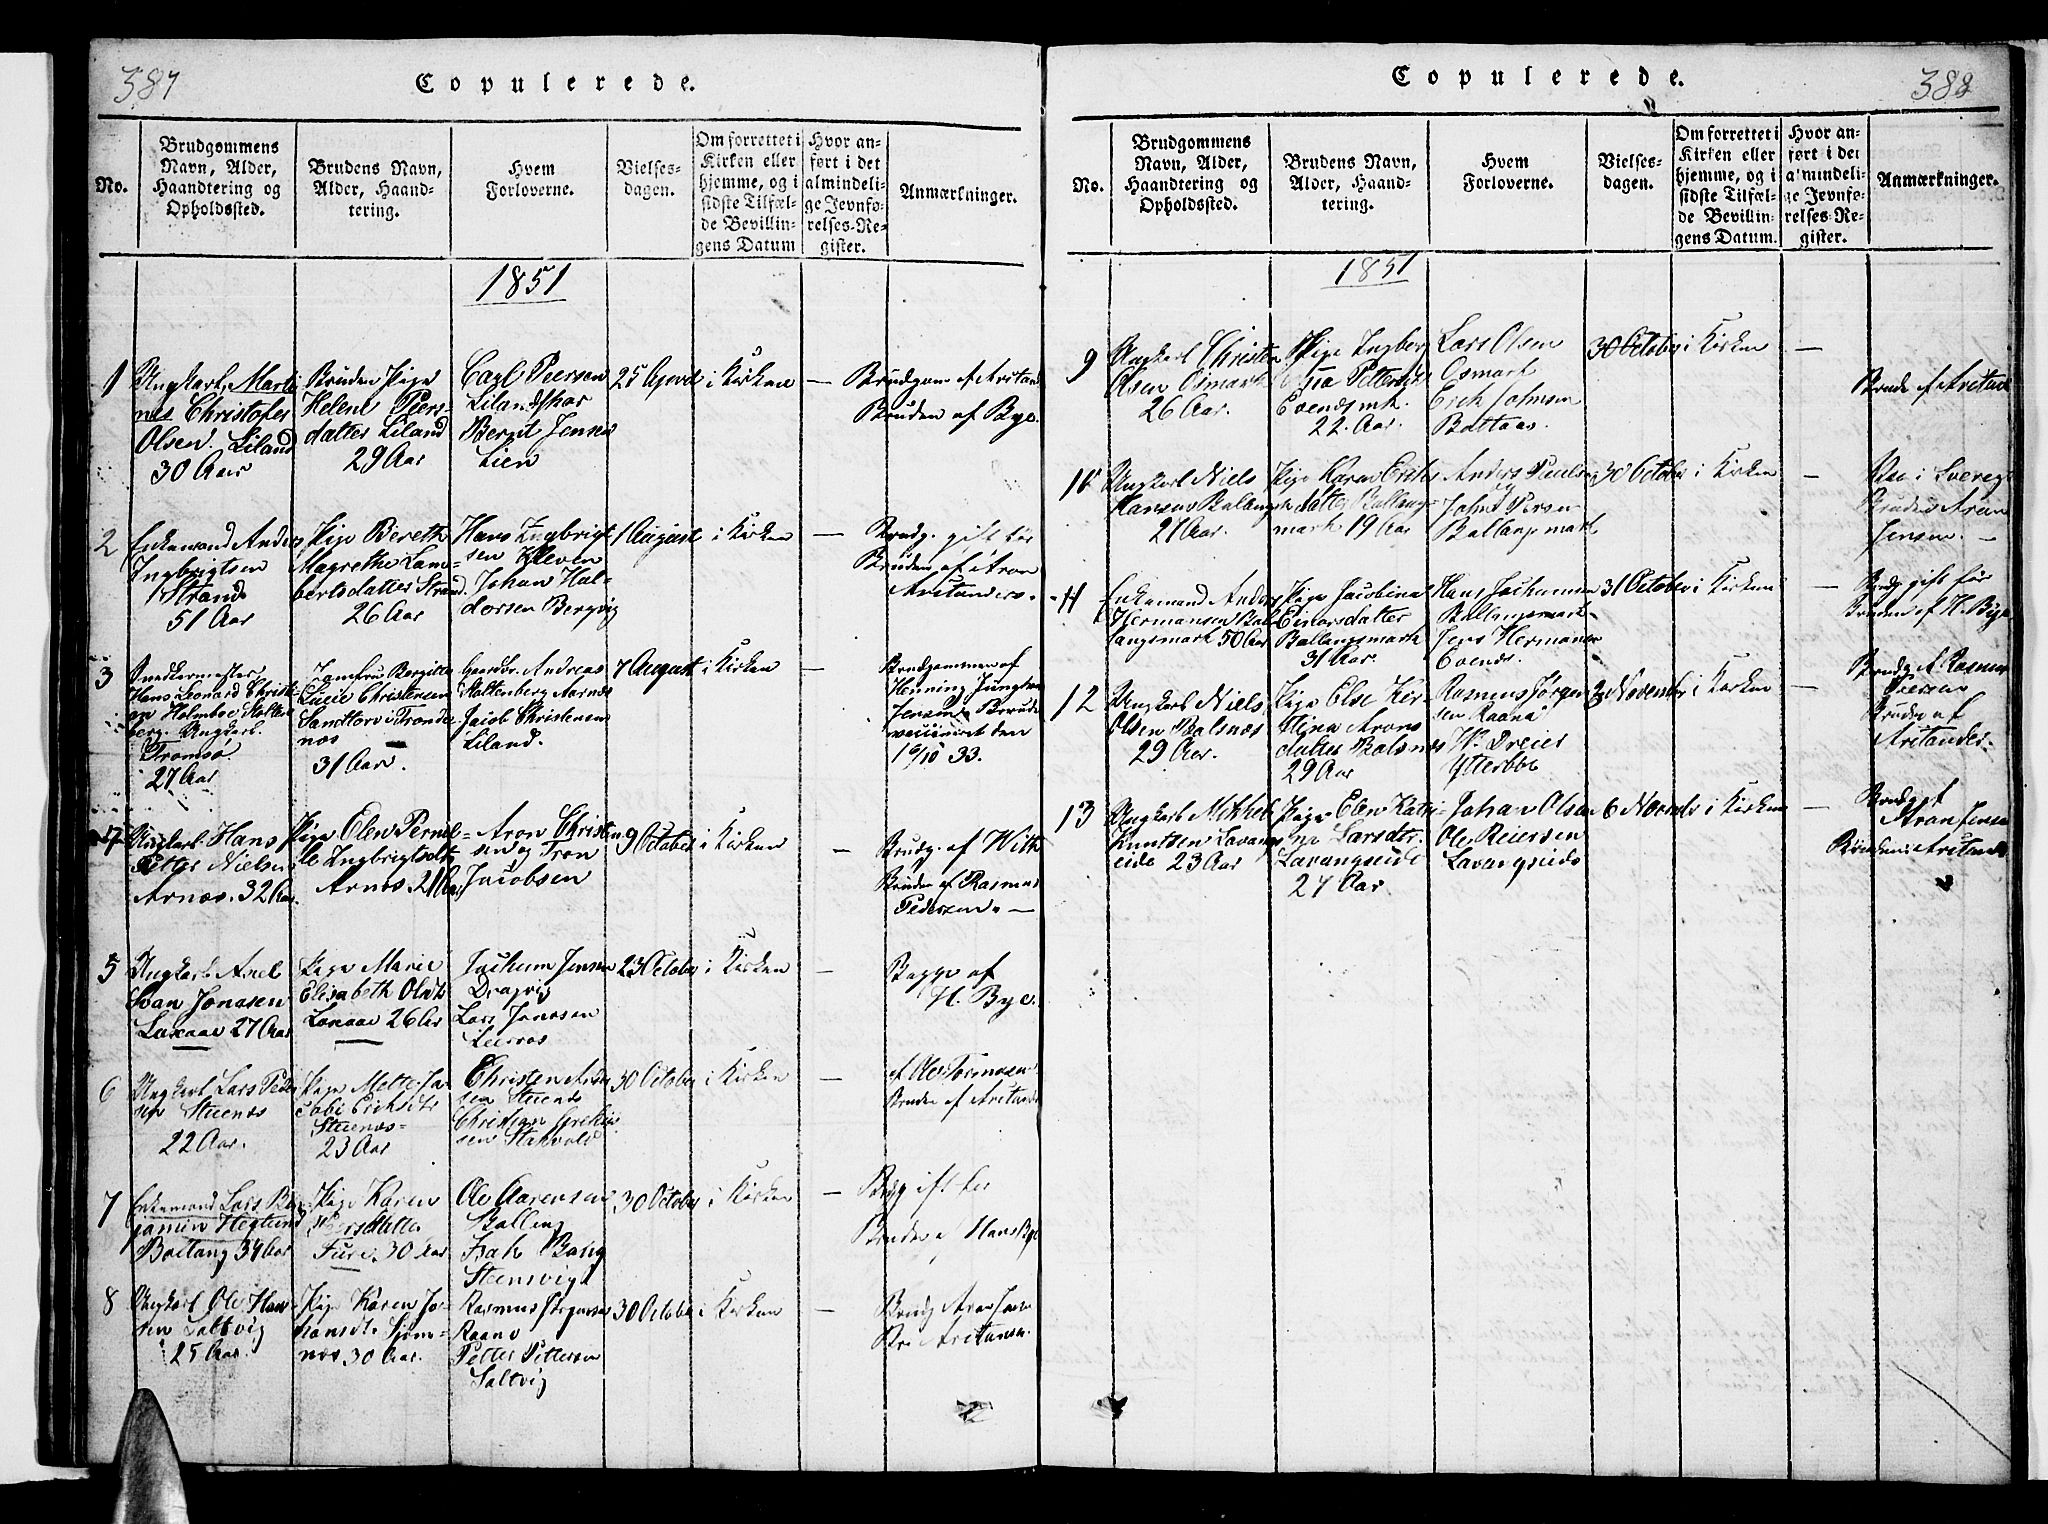 387
Copulerede.
No.
Brudgommens
Navn, Alder,
Haandtering og
Opholdssted.
Brudens Navn,
Alder, Haand-
tering.
Hvem
Forloverne.
Vielses-
dagen.
Om forrettet i
Kirken eller
hjemme, og i
sidste Tilfæl-
de Bevillin-
gens Datum
Hvor an-
ført i det
almindeli-
ge Jevnfø-
relses-Re-
gister.
Anmærkninger.
1851
1
Ungkarl Marti
nus Christofer
Olsen Liland
30 Aar
Bruden Pige
Helene Peers-
datter Liland
29 Aar
Carl Peersen
Lilandskar
Bernt Jensen
Lien
25 April
i Kirken
—
Brudgom af Aristand
Bruden af Bye.
2
Enkemand Anders
Ingbrigtsen
Strand
51 Aar
Pige Bereth
Magrethe Lam-
bertsdatter Strand
26 Aar
Hans Ingbrigt
sen Kleven
Johan Hal-
dorsen Bergvig
1 August
i Kirken
—
Brudg. gift før
Bruden af Aron
Aristanders.
3
Snedkermester
Hans Leonard Christi
an Holmboe Stolten
berg. Ungkarl.
Tromsø.
27 Aar
Jomfru Bergitte
Lucie Christensen
Sandtorv i Tronde
næs
31 Aar.
Gaardbr. Andreas
Stoltenberg Aarnes
Jacob Christensen
Liland.
7 August
i Kirken
—
Brudgommen af
Henning Junghan
Jensen Brude
vaccineret den
10/10 33.
4
Ungkarl Hans
Petter Nielsen
Arnæs. 32 Aar.
Pige Olen Pernil-
le Ingbrigtsdtr
Arnæs. 21 Aar
Aron Christen
sen og Tron
Jacobsen
9 October
i Kirken
—
Brudg. af With
Bruden af Rasmus
Pedersen. —
5
Ungkarl Axel
Svan Jonasen
Laxaae 27 Aar
Pige Marie
Elisabeth Olsdtr
Laxaae 26 Aar
Jochum Jensen
Dragvig
Lars Jonasen
23 October
i Kirken
—
Begge af
H. Bye.
6
Ungkarl Lars Peder
sen Steenæs
22 Aar.
Pige Mette Ja
cobi Erichsdtr
Steenæs-
23 Aar
Christen Ander
sen Steenæs
Christian
sen Stavold
30 October
i Kirken
—
af Ole Tormosen
Bruden af Aristand
7
Enkemand Lars Ben
jamin Heglund
Botlang 34 Aar
Pige Karen
Persdatter
Fure. 30 Aar
Ole Aarensen
Balling
Isak Bang
Steensvigt
30 October
i Kirken
—
Brudg gift før
Bruden af Hans Bye
8
Ungkarl Ole Han
sen Saltvig
25 Aar
Pige Karen Jo-
hansdtr Sjøm-
næs 30 Aar.
Rasmus Jørgensen
Raane
Petter Pettersen
Saltvig
30 October
i Kirken
—
Brudg Aron Jens
Bru Aristansen
388
Copulerede.
No.
Brudgommens
Navn, Alder,
Haandtering og
Opholdssted.
Brudens Navn,
Alder, Haand-
tering.
Hvem
Forloverne.
Vielses-
dagen.
Om forrettet i
Kirken eller
hjemme, og i
sidste Tilfæl-
de Bevillin-
gens Datum.
Hvor an-
ført i det
almindeli-
ge Jevnfø-
relses-Re-
gister.
Anmærkninger.
1851
9
Ungkarl Christen
Olsen Osmark
26 Aar.
Pige Ingberg
Petersdtr
Evendsmk.
22. Aar.
Lars Olsen
Osmark
Erik Johnsen
Boltaas.
30 October
i Kirken
—
Brude af Aristande
10
Ungkarl Niels
Hansen Ballangs
21 Aar.
Pige Karen Eriks
datter Ballangs-
mark 19 Aar
Anders Paulsen
John Persen
Ballangsmark
30 October
i Kirken
—
Vac i Sverege
Bruden Aron
Jensen. —
11
Enkemand Anders
Hermansen Bal
langsmark 50 Aar
Pige Jacobina
Einarsdatter
Ballangsmark
31 Aar.
Hans Jochumsen
Ballangsmark
Jens Hermansen
Evends.
31 October
i Kirken
—
Brudg gift før
Bruden af H. Bye
12
Ungkarl Niels
Olsen Balsnæs
29 Aar.
Pige Else Kir
stina Arons
datter Balsnæs
29 Aar
Rasmus Jørgen
sen Raana
W. Dreier
Ytterboe
3 November
i Kirken
—
Brudg af Rasmus
Peersen
Bruden af
Aristander.
13
Ungkarl Mikkel
Knutsen Lavangs
eide 23 Aar
Pige Elen Katri-
ne Larsdtr.
Lavangseide
27 Aar.
Johan Olsen
Ole Reiersen
Lavangseide
6 Novemb
i Kirken
—
Brudg af
Aron Jensen
Bruden: Aristande